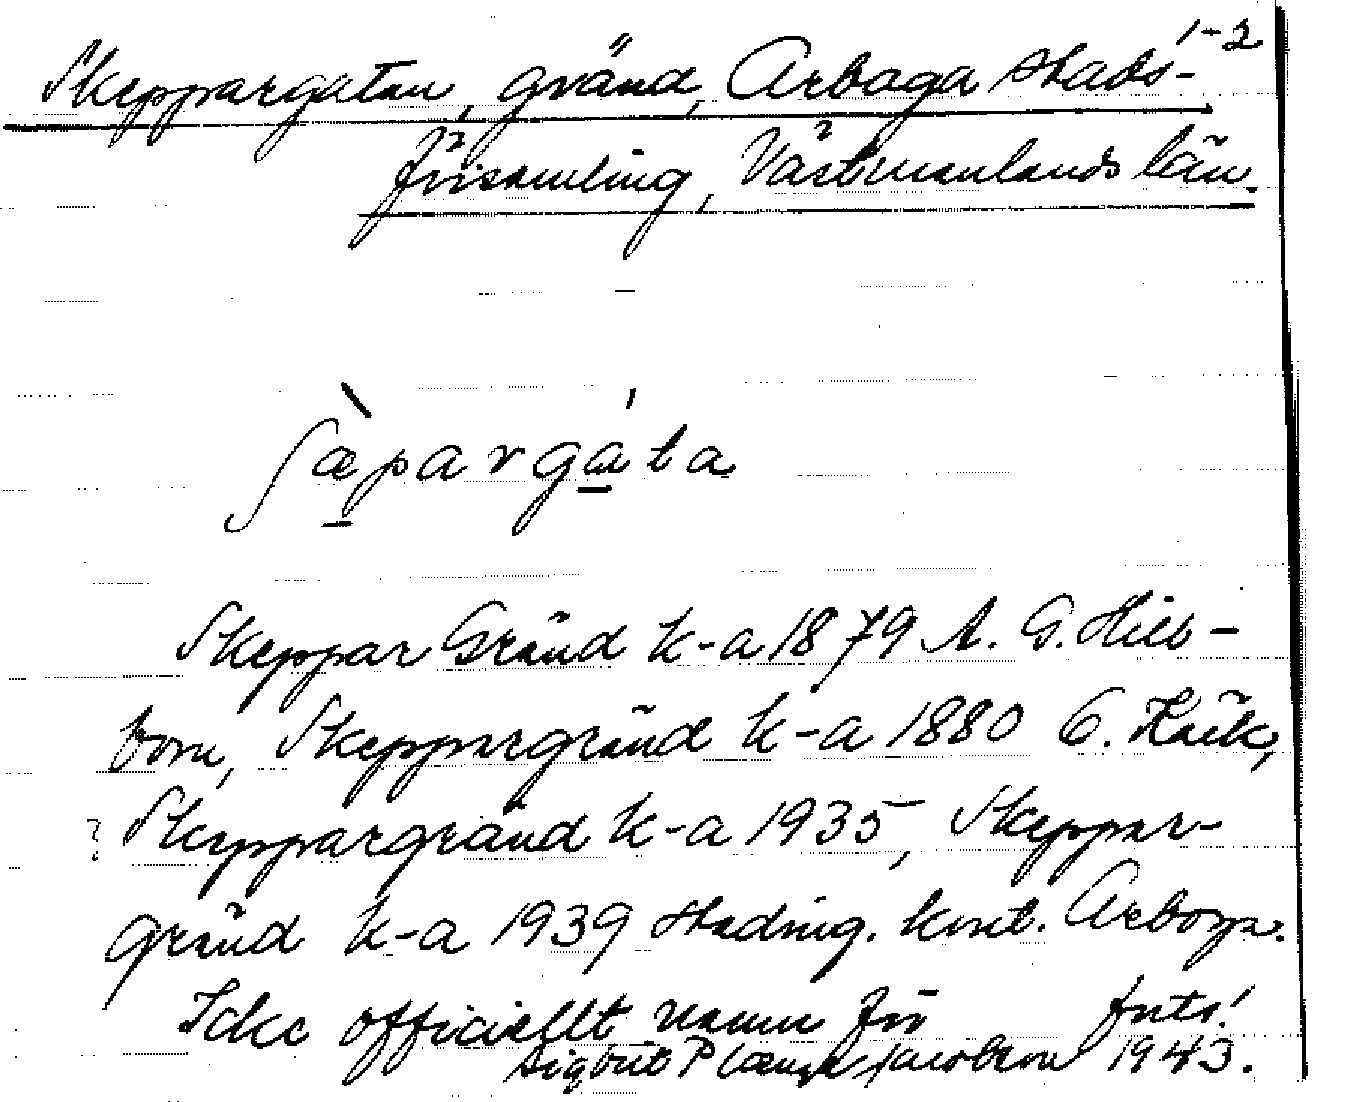 1-2
Skeppargatan, gränd, Arboga stads-
församling, Västmanlands län.
ʃæ̀pargáta
Skeppar Gränd k-a 1879 A. G. Hill-
bom, Skeppargränd k-a 1880 C. Käck,
? Skeppargränd k-a 1935, Skeppar-
gränd k-a 1939 Stadsing. kont. Arboga.
Icke officiellt namn för forts!
Sigbrit Jacobson 1943.